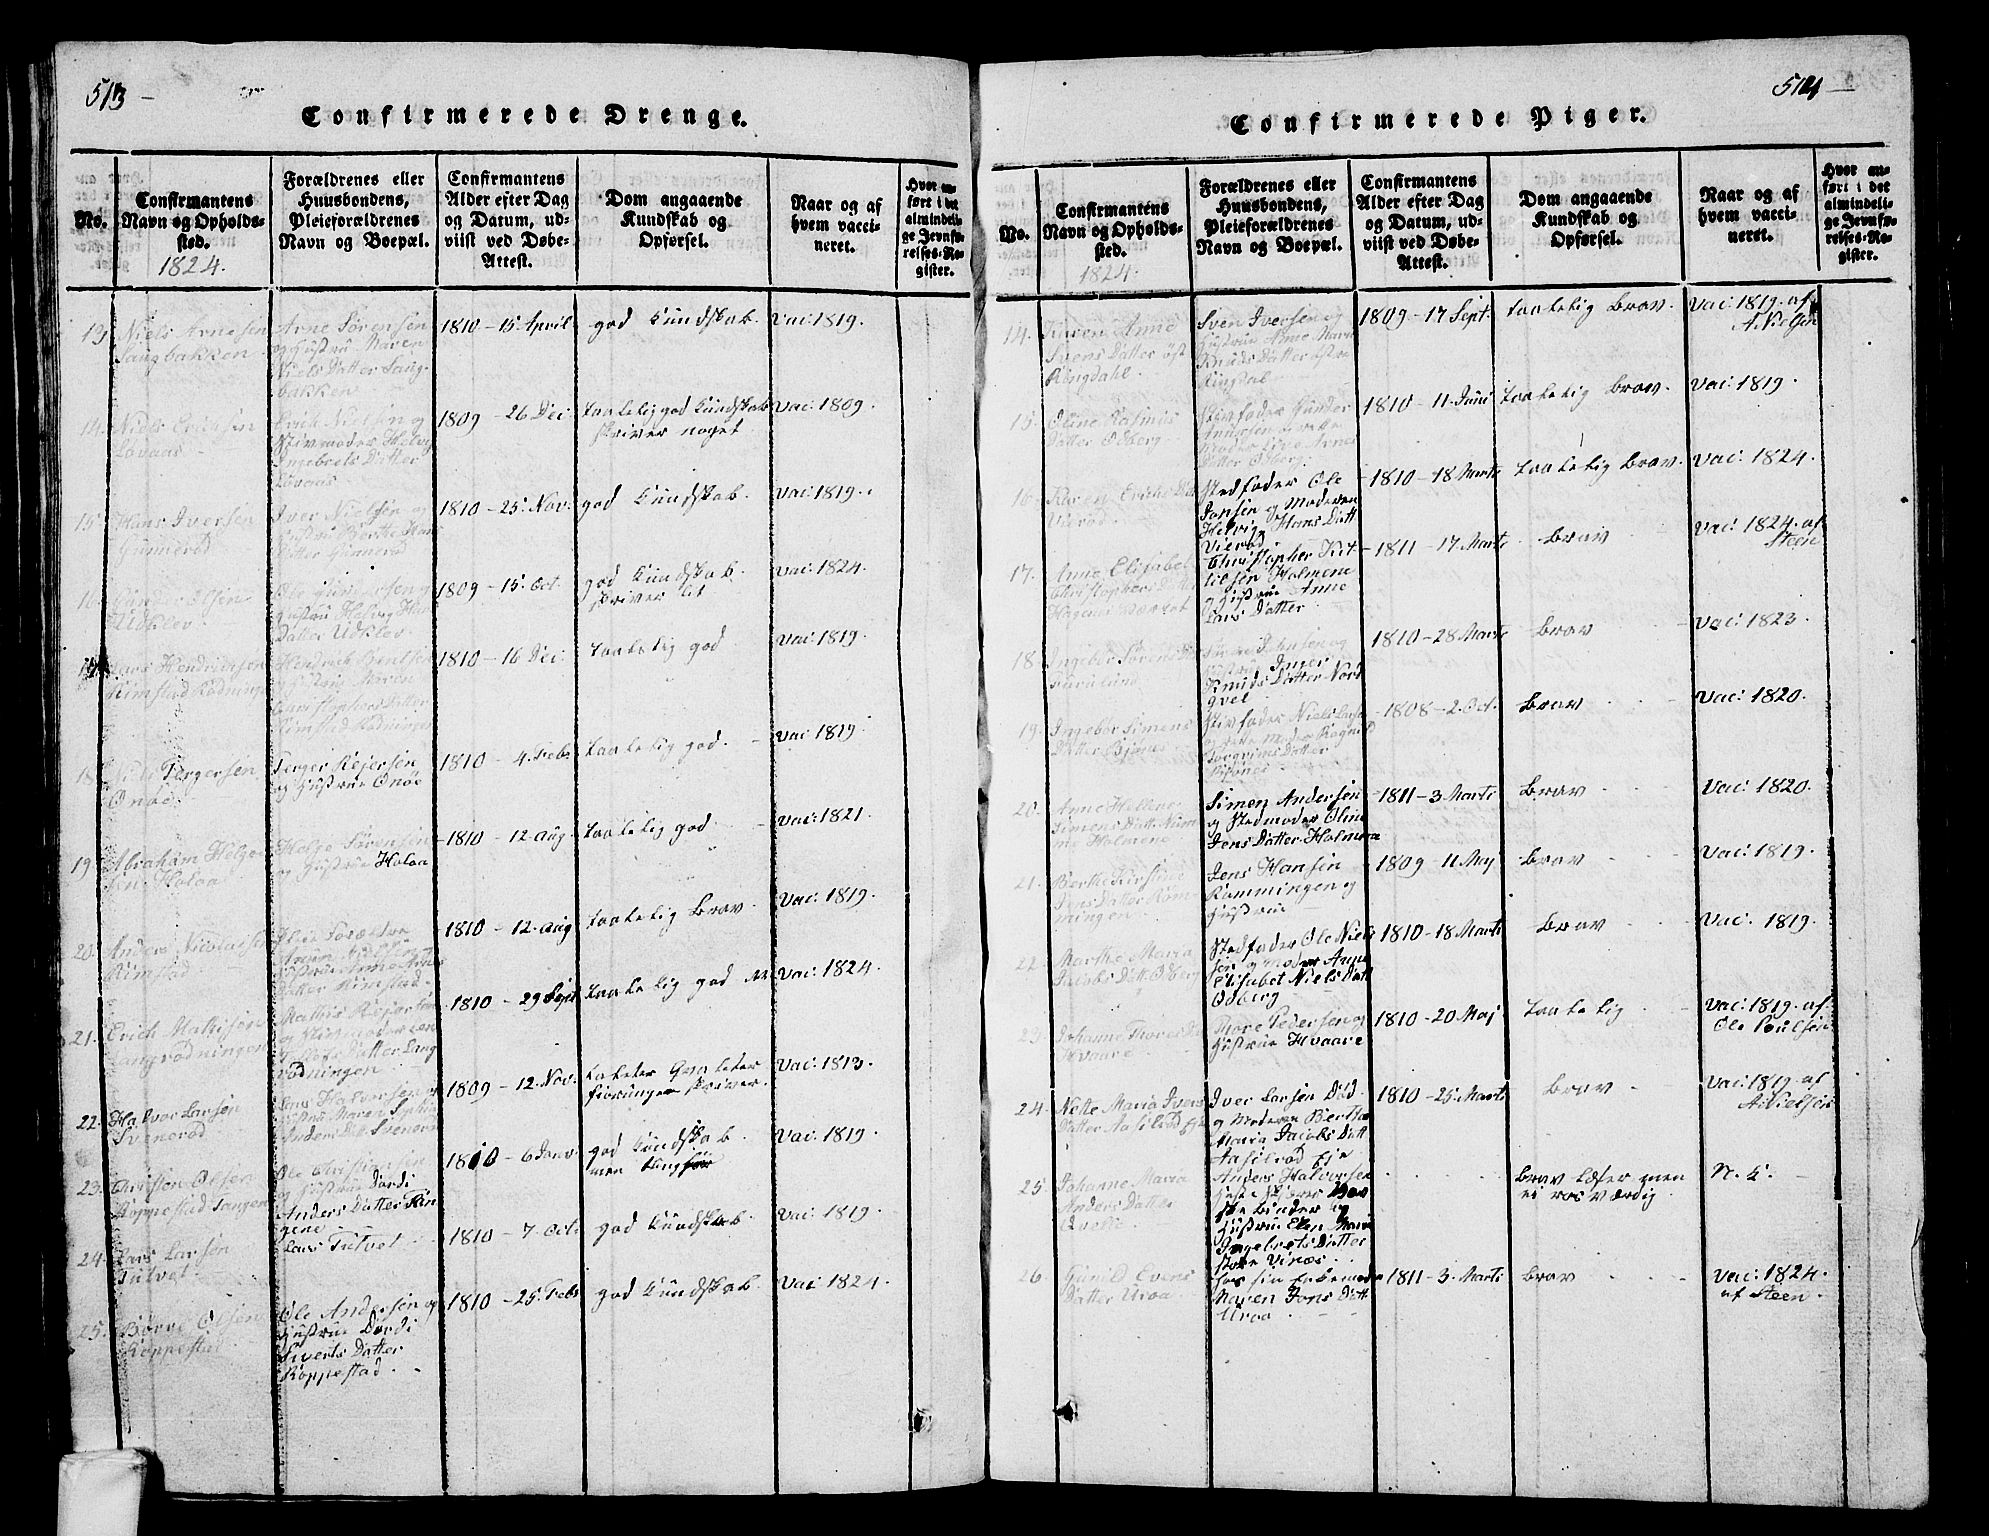 513
Confirmerede Drenge.
No.
Confirmantens
Navn og Opholds-
sted.
1824.
Forældrenes eller
Huusbondens,
Pleieforældrenes
Navn og Boepæl.
Confirmantens
Alder efter Dag
og Datum, ud-
viist ved Døbe-
Attest.
Dom angaaende
Kundskab og
Opførsel.
Naar og af
hvem vacci-
neret.
Hvor an-
ført i det
almindeli-
ge Jevnfø-
relses-Re-
gister.
13.
Niels Arnesen
Saugbakken
Arne Sørensen
og Hustrue Maren
Niels Datter Saug-
bakken
1810 - 15 April
god Kundskab.
Vac: 1819.
14.
Niels Erichsen
Løvaas
Erich Nielsen og
Stivmoder Helvig
Ingebrets Datter
Løvaas
1809 - 26 Dec:
taalelig god Kundskab
skriver noget
Vac: 1809.
15.
Hans Iversen
Gunnerød
Iver Nielsen og
Hustrue Berthe Hans
Datter Gunnerød
1810 - 25 Nov:
god Kundskab.
Vac: 1819.
16.
Gunder Olsen
Udklev
Ole Gundersen og
Hustrue Helvig
Datter Udklev
1809 - 15 Oct.
god Kundskab.
skriver lit
Vac: 1824.
Lars Hendrichsen
Rimstad Rødningen
Hendrich Bentsen
og Hustrue Maren
Christophers Datter
Rimstad Rødningen
1810 - 16 Dec:
taalelig god
Vac: 1819.
18.
Niels Tergersen
Onøe
Terger Rejersen
og Hustrue Onøe
1810 - 4. Febr
taalelig god.
Vac 1819.
19.
Abraham Helge-
sen Holaa
Helge Sørensen
og Hustrue Holaa
1810 - 12. Aug.
taalelig god
Vac: 1821.
20.
Anders Nicolaisen
Rimstad
Pleie Forældre
Hustrue Anne
Datter Rimstad.
1810 - 12. Aug
taalelig Brav.
Vac: 1819.
21.
Erich Mathisen
Langrødningen
Mathis Rejersen
og Stivmoder
Datter Lang
rødningen
1810 - 29 Sept
taalelig god
Vac: 1824.
22.
Halvor Larsen
Svenerød
Lars Halvorsen og
Hustrue Maren Sophie
Anders Datt Svenerø
1809 - 12. Nov.
skriver.
Vac: 1813.
23.
Christen Olsen
Røppestad Tangen
Ole Christensen
og Hustrue Dordi
Anders Datter
1810 - 6 Janv
god Kundskab.
men
Vac: 1819.
24.
Lars Larsen
Tutvet
Lars Tutvet
1810 - 7. Oct.
god Kundskab.
Vac: 1819.
25.
Børre Olsen
Røppestad
Ole Andersen og
Hustrue Dordi
Siverts Datter
Røppestad.
1810 - 25. Febr
god Kundskab.
Vac 1824.
514
Confirmerede Piger.
No.
Confirmantens
Navn og Opholds-
sted.
1824.
Forældrenes eller
Huusbondens,
Pleieforældrenes
Navn og Boepæl.
Confirmantens
Alder efter Dag
og Datum, ud-
viist ved Døbe-
Attest.
Dom angaaende
Kundskab og
Opførsel.
Naar og af
hvem vacci-
neret.
Hvor an-
ført i det
almindeli-
ge Jevnfø-
relses-Re-
gister.
14.
Karen Anne
Svens Datter øst
Ringdahl
Sven Iversen og
Hustrue Anne Marie
Knuds Datter østre
Ringdal
1809 - 17 Sept.
taalelig Brav.
Vac: 1819. af
A. Nielsen
15.
Oline Rasmus
Datter Odberg
Stivfader Gunder
Moder Live Arnes
Datter Odberg.
1810 - 11. Juni
taalelig Brav.
Vac: 1819.
16.
Karen Erichs Dat
Vierød
Stedfader Ole
Jonsen og Moderen
Helvig Hans Datt
Vierød.
1810 - 18 Marts
taalelig brav.
Vac: 1824.
17.
Anne Elisabet
Christophers Datter
Christopher Ket-
tilsen Holmene
og Hustrue Anne
Lars Datter
1811 - 17 Marts
Brav
Vac: 1824. af
Steen
18.
Ingebor Sørens Dat
Furulund
Hustrue Inger
Knuds Datter Nord
qvel
1810 - 28 Marts
Brav
Vac: 1823.
19.
Ingebor Simens
Datter Bjønes
Stivfader Niels
Moder Ragnild
Torgrims Datter
Bjønes
1808 - 2. Oct.
Brav
Vac: 1820.
20.
Anne Hellene
Simens Datt
Holmene
Simen Andersen
og Stedmoder Oline
Jens Datter Holmene
1811 - 3 Marts
Brav
Vac: 1820.
21.
Berthe Kirstine
Jens Datter Røm-
mingen
Jens Hansen
Rømmingen og
Hustrue
1809 - 11 Maj
Brav
Vac: 1819.
22.
Marthe Maria
Jacobs Datt Odberg
Stedfader Ole Niel-
sen og Moder Anne
Elisabet Niels Datt
Odberg
1810 - 18 Marts
Brav
Vac: 1819.
23.
Johanne Thores Dat
Hvaare
Thore Pedersen og
Hustrue Hvaare
1810 - 20 Maj
taalelig
Vac: 1819. af
Ole Poulsen
24.
Nette Maria Ivers
Datter Aasilrød Eje
Iver Larsen Død
og Moderen Berthe
Maria Jacobs Datt
Aasilrød Eje
1810 - 25. Marts
Brav
Vac: 1819. af
A. Nielsen
25.
Johanne Maria
Anders Datter
Qvelle.
Anders Halvorsen
Hustrue Elen Marie
Ingebrets Datter
store Vinæs.
Brav Læser men
ei rosværdig.
N. L.
26.
Gunild Evens
Datter Uroa
hos sin Enkemoder
Maren Jons Datt
Uroa
1811 - 3. Marts
Brav
Vac: 1824.
af Steen.